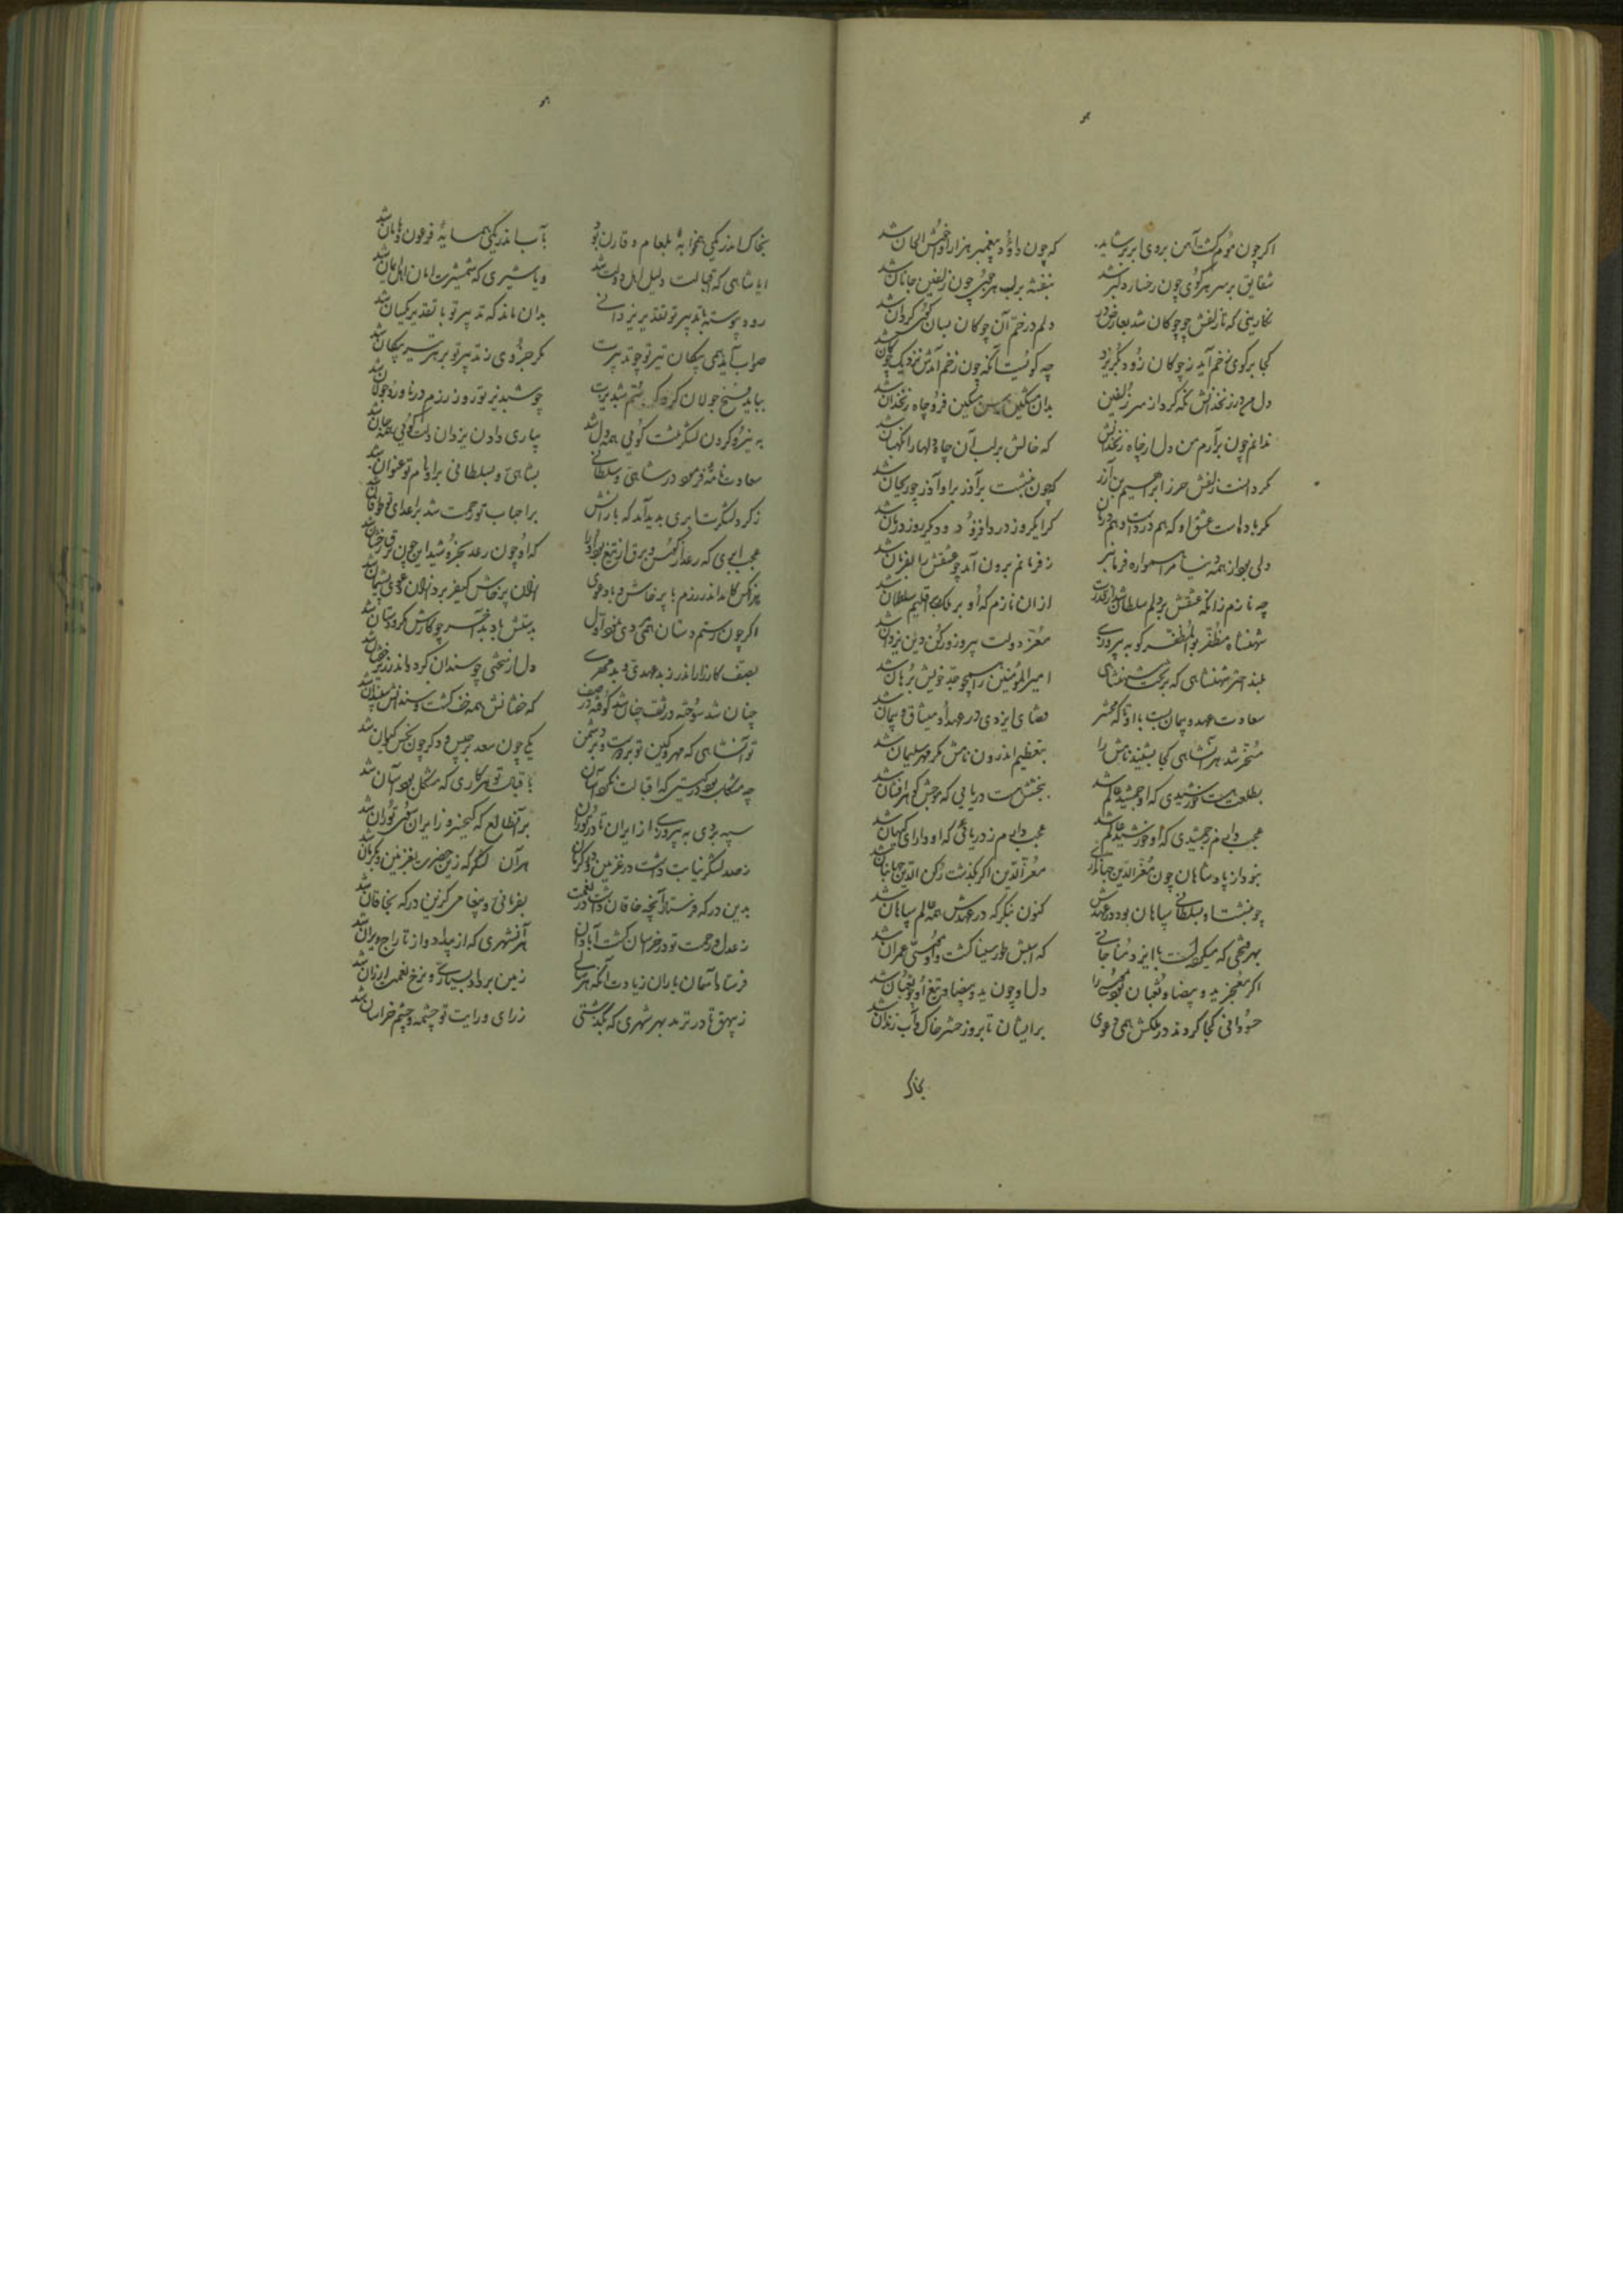 اکر چون موم کشت آهن بروی ابر بوشاید که چون داود پیغمبر هزار آوا خوش الحان شد
شقایق بر سر هر کوی چون رخسار دلبر شد بنفشه بر لب هر جوی چون زلفین جانان شد
نکارینی که تا زلفش چو چوکان شد بعارض بر دلم در خم آن چوکان بسان کوی کردان شد
کجا بر کوی زخم آید ز چوکان زود بکریزد چه کویست آنکه چون زخم آمدش نزدیک چوکان شد
دل من در زنخدانش نکه کرد از سر زلفین بدان مشکین مسکین فرو چاه زنخدان شد
ندانم چون برآرم من دل از چاه زنخدانش که خالش بر لب آن چاه دلها را نکهبان شد
مکر دانست زلفش حرز ابراهیم بن آزر که چون بنشست بر آذر بر او آذر چو ریحان شد
مکر باد هاست عشق او که هم دردست و هم درمان کر ایکروز درد افزود و دیکر روز درمان شد
دلی بود از همه دنیا مرا همواره فرمانبر ز فرمانم برون آمد چو عشقش را بفرمان شد
چه نازم زانکه عشقش بر دلم سلطان شد از قدرت از ان نازم که او بر ملک اقلیم سلطان شد
شهنشاه مظفر بو المظفر کو به پیروزی معز دولت پیروز و رکن دین یزدان شد
بلند اختر شهنشاهی که بر تخت شهنشاهی امیر المؤمنین را همچو جد خویش برهان شد
سعادت عهد و پیمان بست با او تا که محشر قضای ایزدی در عهد او میثاق و پیمان شد
مسخر شد هر آنشاهی کجا بشنید نامش را بتعظیم اندرون نامش مکر مهر سلیمان شد
بطلعت هست خورشیدی که او جمشید عالم شد ببخشش هست دریایی که موجش کوهر افشان شد
عجب دارم ز جمشیدی که او خورشید عالم شد عجب دارم ز دریایی که او دارای کیهان شد
نبود از پادشاهان چون معز الدین جهانداری معز الدین اکر بکذشت رکن الدین جهانبان شد
چو بنشست او بسلطانی سپاهان بود در عهدش کنون بنکر که در عهدش همه عالم سپاهان شد
بهر فتحی که میکردست با ایزد مناجاتی که اسبش طور سینا کشت و او موسی عمران شد
اکر معجز ید و بیضا و ثعبان بود موسی را دل او چون ید و بیضا و تیغ او چو ثعبان شد
حسودانی کجا کردند در ملکش همی دعوی بر ایشان تا بروز حشر خاک و آب زندان شد
بخاک
بخاک اندر یکی همخوابه بلعام و قارون بود بآب اندر یکی همسایه فرعون و هامان شد
ایا شاهی که اقبالت دلیل اهل دولت شد و یا شیری که شمشیرت امان اهل ایمان شد
رود پیوسته تدبیر تو تقدیر یزدانی بدان ماند که تدبیر تو با تقدیر یکسان شد
صواب آید همی پیکان تیر تو چو تدبیرت مکر جزوی ز تدبیر تو بر هر تیر پیکان شد
بباید فسخ جولان کرد شبدیزت چو شبدیز تو روز رزم در ناورد و جولان شد
به نیزه کردن لشکر تنت کویی همه دل شد بیاری دادن یزدان دلت کویی همه جان شد
سعادت نامه فرمود در شاهی و سلطانی بشاهی و بسلطانی بر او نام تو عنوان شد
ز کرد لشکرت ابری بدید آمد که بارانش بر احباب تو رحمت شد بر اعدای تو طوفان شد
عجب ابری که رعد از کوس و برق از تیغ بود او را که او چون رعد بخروشید این چون برق رخشان شد
هر آنکس کامد اندر رزم با پرخاش و با دعوی ازان پرخاش کیفر برد و زان دعوی پشیمان شد
اکر چون رستم دستان همی دعوی نمود اول بدستش باد بد آخر چو کارش مکر و دستان شد
بصف کارزار اندر ز بدعهدی و بدمهری دل از سختی چو سندان کرد و اندر زیر خفتان شد
چنان شد سوخته در تف چنان شد کوفته در صف که خفتانش همه خف کشت و سندانش سپندان شد
تو آنشاهی که مهر و کین تو بر دوست و بر دشمن یکی چون سعد برجیس و دکر چون نحس کیوان شد
چه مشکل بود در کیتی که اقبالت نکرد آسان باقبالت تو هر کاری که مشکل بود آسان شد
سپه بردی به پیروزی از ایران تا در توران بر آنطالع که کیخسرو ز ایران سوی توران شد
ز صد لشکر نیابت داشت در غزنین و در کرمان هر آن لشکر که زین حضرت بغزنین و بکرمان شد
بدین درکه فرستاد آنچه خاقان داشت از نعمت بفرمانی و پیغامی کزین درکه بخاقان شد
ز عدل و رحمت تو در خراسان کشت آبادان هر آنشهری که از بیداد و از تاراج ویران شد
فرستاد آسمان باران زیادت آنکه هر سالی زمین بر داد بسیاری و نرخ نعمت ارزان شد
ز بیهق تا در ترمد بهر شهری که بکذشتی ز رای و رایت تو چشمه و چشم خراسان شد